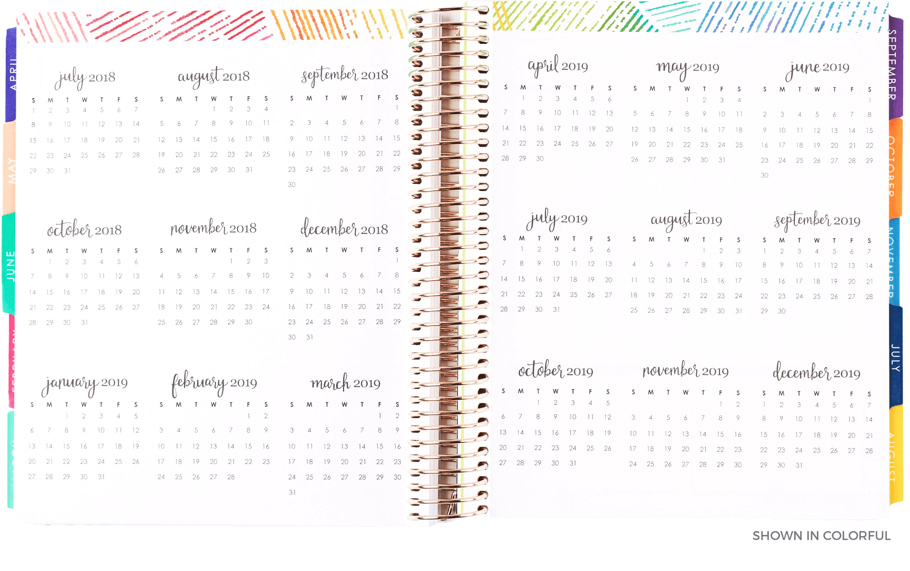 APRIL
MAY
JUNE
july 2018
S M T W T F S
1 2 3 4 5 6 7
8 9 10 11 12 13 14
15 16 17 18 19 20 21
22 23 24 25 26 27 28
29 30 31
august 2018
S M T W T F S
1 2 3 4
5 6 7 8 9 10 11
12 13 14 15 16 17 18
19 20 21 22 23 24 25
26 27 28 29 30 31
september 2018
S M T W T F S
1
2 3 4 5 6 7 8
9 10 11 12 13 14 15
16 17 18 19 20 21 22
23 24 25 26 27 28 29
30
october 2018
S M T W T F S
1 2 3 4 5 6
7 8 9 10 11 12 13
14 15 16 17 18 19 20
21 22 23 24 25 26 27
28 29 30 31
november 2018
S M T W T F S
1 2 3
4 5 6 7 8 9 10
11 12 13 14 15 16 17
18 19 20 21 22 23 24
25 26 27 28 29 30
december 2018
S M T W T F S
1
2 3 4 5 6 7 8
9 10 11 12 13 14 15
16 17 18 19 20 21 22
23 24 25 26 27 28 29
30 31
january 2019
S M T W T F S
1 2 3 4 5
6 7 8 9 10 11 12
13 14 15 16 17 18 19
20 21 22 23 24 25 26
27 28 29 30 31
february 2019
S M T W T F S
1 2
3 4 5 6 7 8 9
10 11 12 13 14 15 16
17 18 19 20 21 22 23
24 25 26 27 28
march 2019
S M T W T F S
1 2
3 4 5 6 7 8 9
10 11 12 13 14 15 16
17 18 19 20 21 22 23
24 25 26 27 28 29 30
31
april 2019
S M T W T F S
1 2 3 4 5 6
7 8 9 10 11 12 13
14 15 16 17 18 19 20
21 22 23 24 25 26 27
28 29 30
may 2019
S M T W T F S
1 2 3 4
5 6 7 8 9 10 11
12 13 14 15 16 17 18
19 20 21 22 23 24 25
26 27 28 29 30 31
june 2019
S M T W T F S
1
2 3 4 5 6 7 8
9 10 11 12 13 14 15
16 17 18 19 20 21 22
23 24 25 26 27 28 29
30
july 2019
S M T W T F S
1 2 3 4 5 6
7 8 9 10 11 12 13
14 15 16 17 18 19 20
21 22 23 24 25 26 27
28 29 30 31
august 2019
S M T W T F S
1 2 3
4 5 6 7 8 9 10
11 12 13 14 15 16 17
18 19 20 21 22 23 24
25 26 27 28 29 30 31
september 2019
S M T W T F S
1 2 3 4 5 6 7
8 9 10 11 12 13 14
15 16 17 18 19 20 21
22 23 24 25 26 27 28
29 30
october 2019
S M T W T F S
1 2 3 4 5
6 7 8 9 10 11 12
13 14 15 16 17 18 19
20 21 22 23 24 25 26
27 28 29 30 31
november 2019
S M T W T F S
1 2
3 4 5 6 7 8 9
10 11 12 13 14 15 16
17 18 19 20 21 22 23
24 25 26 27 28 29 30
december 2019
S M T W T F S
1 2 3 4 5 6 7
8 9 10 11 12 13 14
15 16 17 18 19 20 21
22 23 24 25 26 27 28
29 30 31
SEPTEMBER
OCTOBER
NOVEMBER
JULY
AUGUST
SHOWN IN COLORFUL